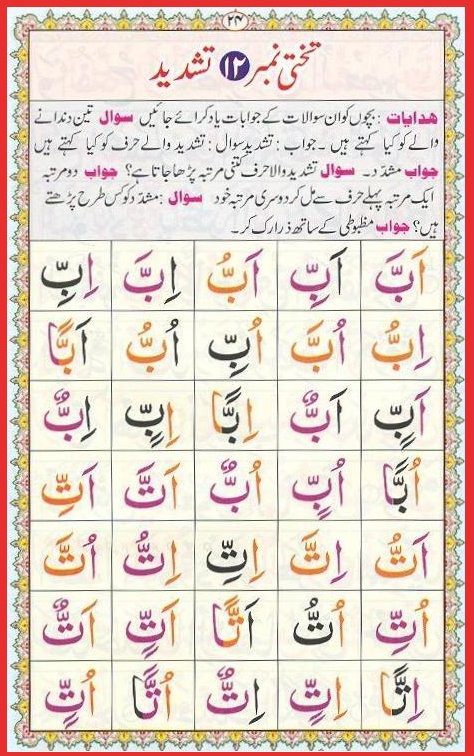 ۲۴
تختی نمبر ۱۲ تشدید
ھدایات : بچوں کو ان سوالات کے جوابات یاد کرائے جائیں سوال تین دندانے
والے کو کیا کہتے ہیں ۔ جواب : تشدید سوال : تشدید والے حرف کو کیا کہتے ہیں
جواب مشدّد۔ سوال تشدید والا حرف کتنی مرتبہ پڑھا جاتا ہے؟ جواب دو مرتبہ
ایک مرتبہ پہلے حرف سے مل کر دوسری مرتبہ خود سوال : مشدّد کو کس طرح پڑھتے
ہیں؟ جواب مظبوطی کے ساتھ ذرا رک کر۔
اَبَّ اَبِّ اَبُّ اِبَّ اِبِّ
اِبُّ اُبَّ اُبِّ اُبُّ اَبًّا
اَبٍّ اَبٌّ اِبًّا اِبٍّ اِبٌّ
اُبًّا اُبٍّ اُبٌّ اَتَّ اَتِّ
اَتُّ اِتَّ اِتِّ اِتُّ اُتَّ
اُتِّ اُتُّ اَتًّا اَتٍّ اَتٌّ
اِتًّا اِتٍّ اِتٌّ اُتًّا اُتٍّ